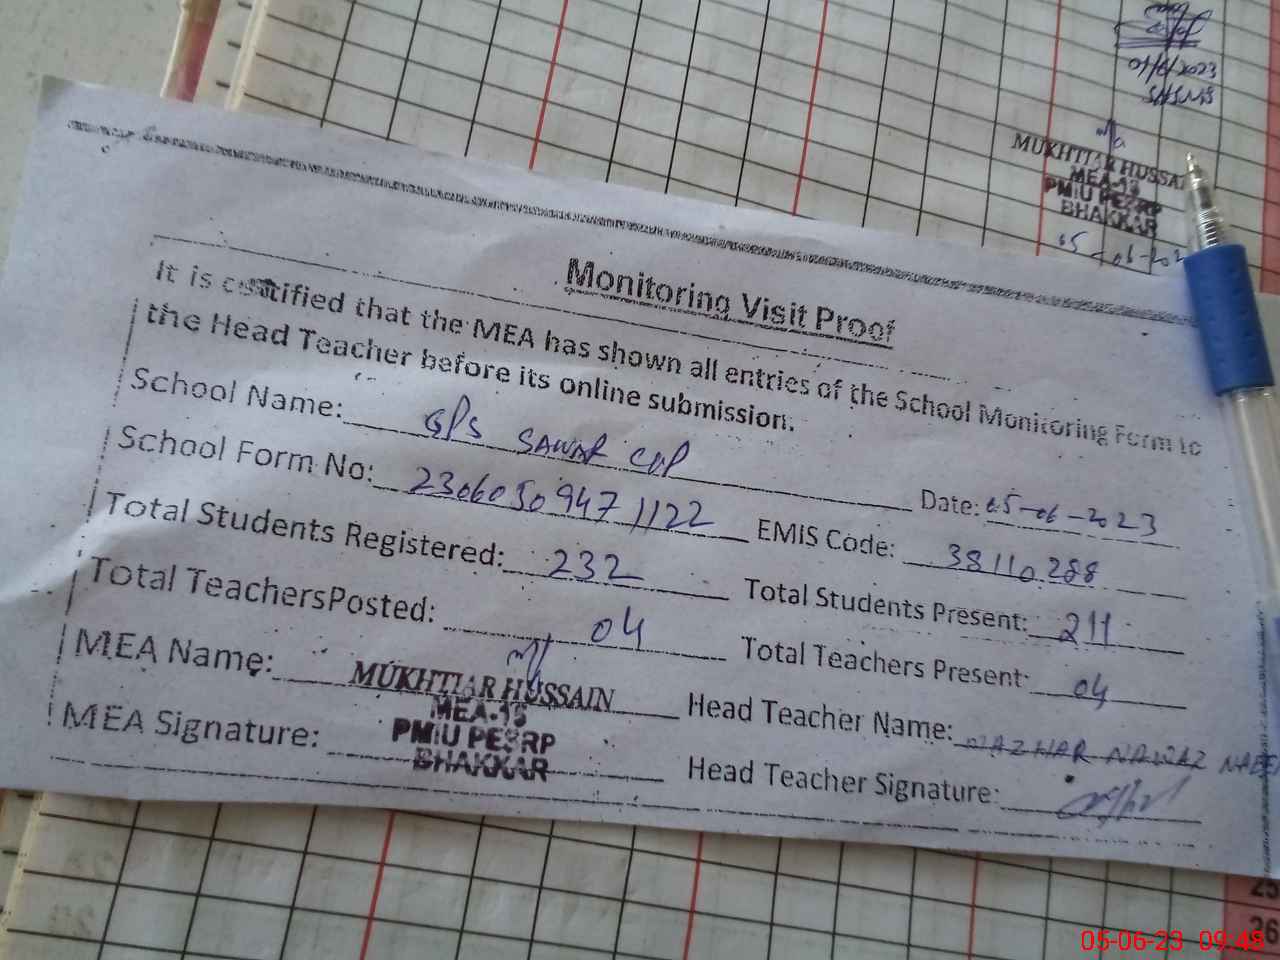 01/6/2023
MUKHTIAR HUSSAI
MEA-15
PMIU PESRP
BHAKKAR
05-06-202
Monitoring Visit Proof
It is certified that the MEA has shown all entries of the School Monitoring Form to
the Head Teacher before its online submission.
School Name: GPS SAWAR Date: 05-06-2023
School Form No: 23060509471122 EMIS Code: 38110288
Total Students Registered: 232 Total Students Present: 211
Total TeachersPosted: 04 Total Teachers Present: 04
MEA Name: MUKHTIAR HUSSAIN Head Teacher Name: MAZHAR NAWAZ
MEA-15
PMIU PESRP
BHAKKAR
MEA Signature: Head Teacher Signature:
25
26
05-06-23 09:48